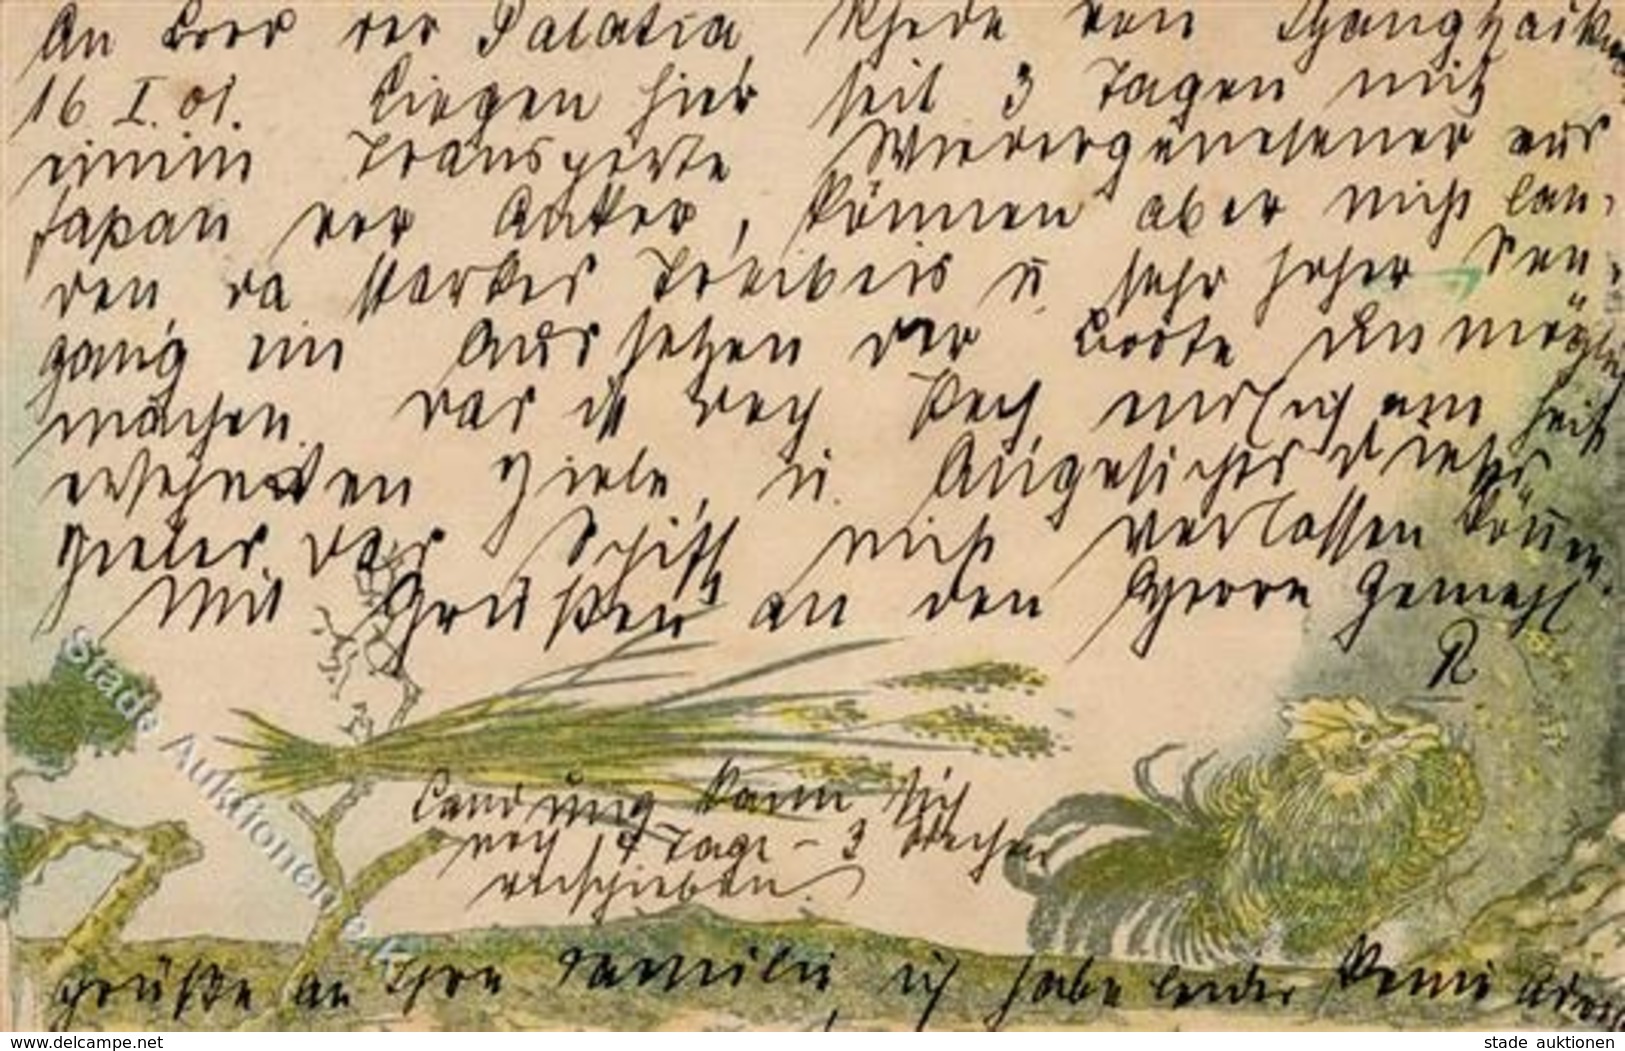 An Bord der Palatia, Rhede von Schanghaikwan
16 I. 01. Liegen hier seit 3 Tagen mit
einem Transporte Wiedergenesener aus
Japan vor Anker, können aber nicht lan-
den, da starkes Treibeis u sehr hoher See-
gang ein Aussetzen der Boote unmöglich
machen. Das ist doch Pech, endlich am heiß
ersehnten Ziele, u. Angesichts dieses
Zieles das Schiff nicht verlassen können.
Mit Grüßen an den Herrn Gemahl
R
Landung kann sich
noch 14 Tage - 3 Wochen
verschieben.
Grüße an Ihre Familie, ich habe leider keine
Stade Auktionen
delcampe.net
stade auktionen